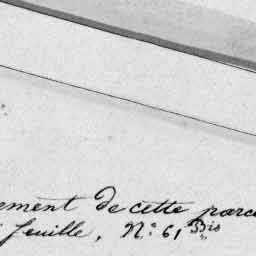 ement de cette parce
feuille, N° 61 Bis